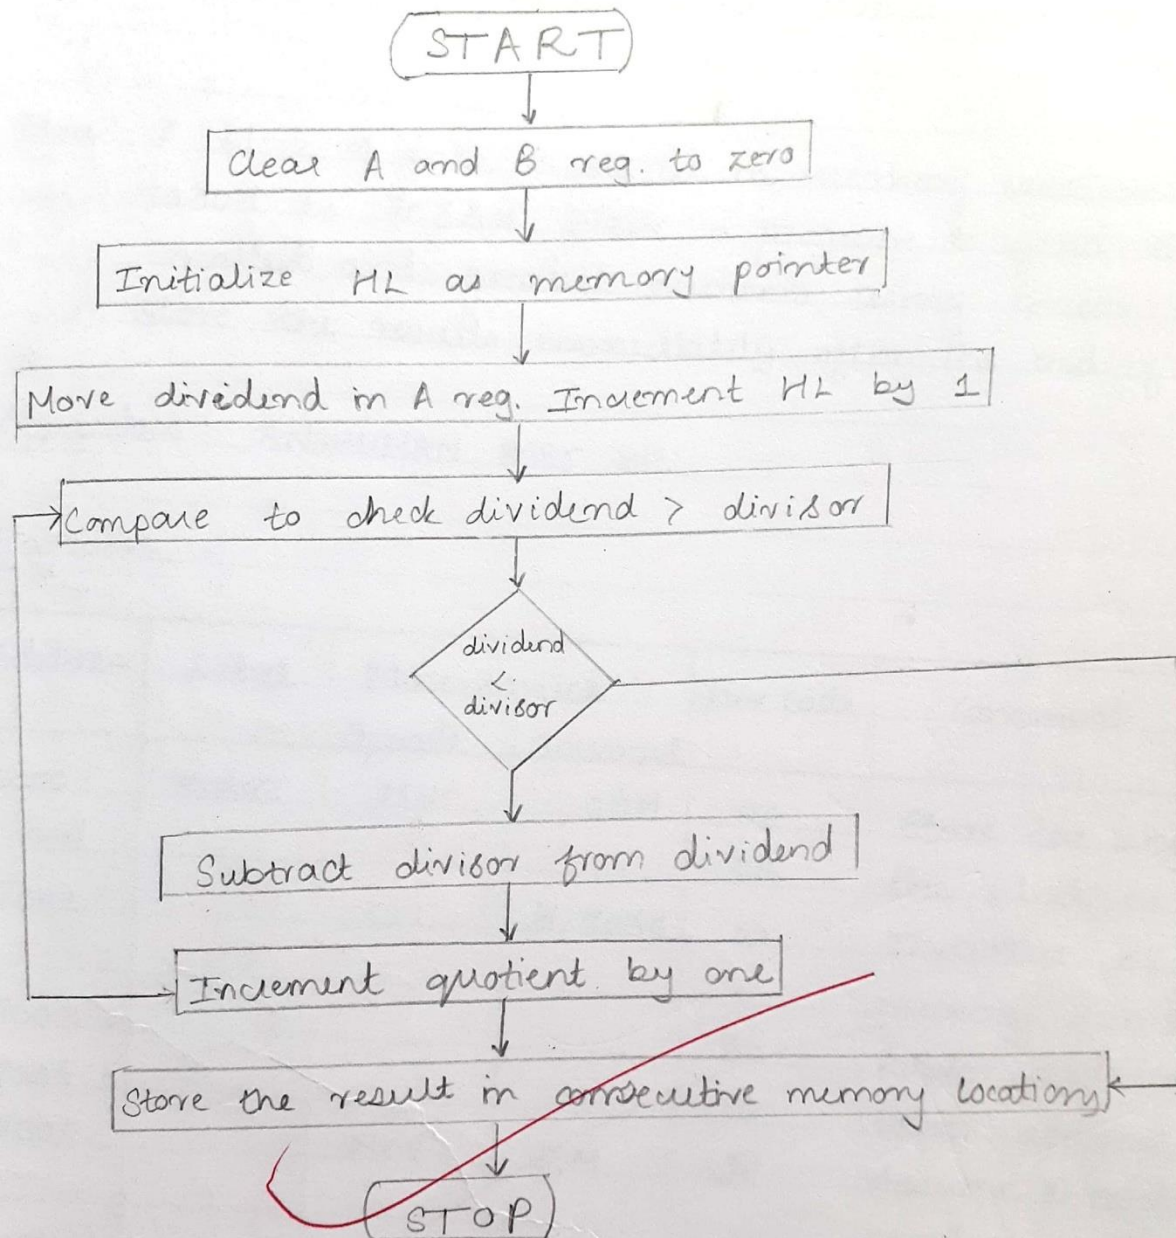 START
Clear A and B reg. to zero
Initialize HL as memory pointer
Move dividend in A reg. Increment HL by 1
Compare to check dividend > divisor
dividend
<
divisor
Subtract divisor from dividend
Increment quotient by one
Store the result in consecutive memory locations
STOP